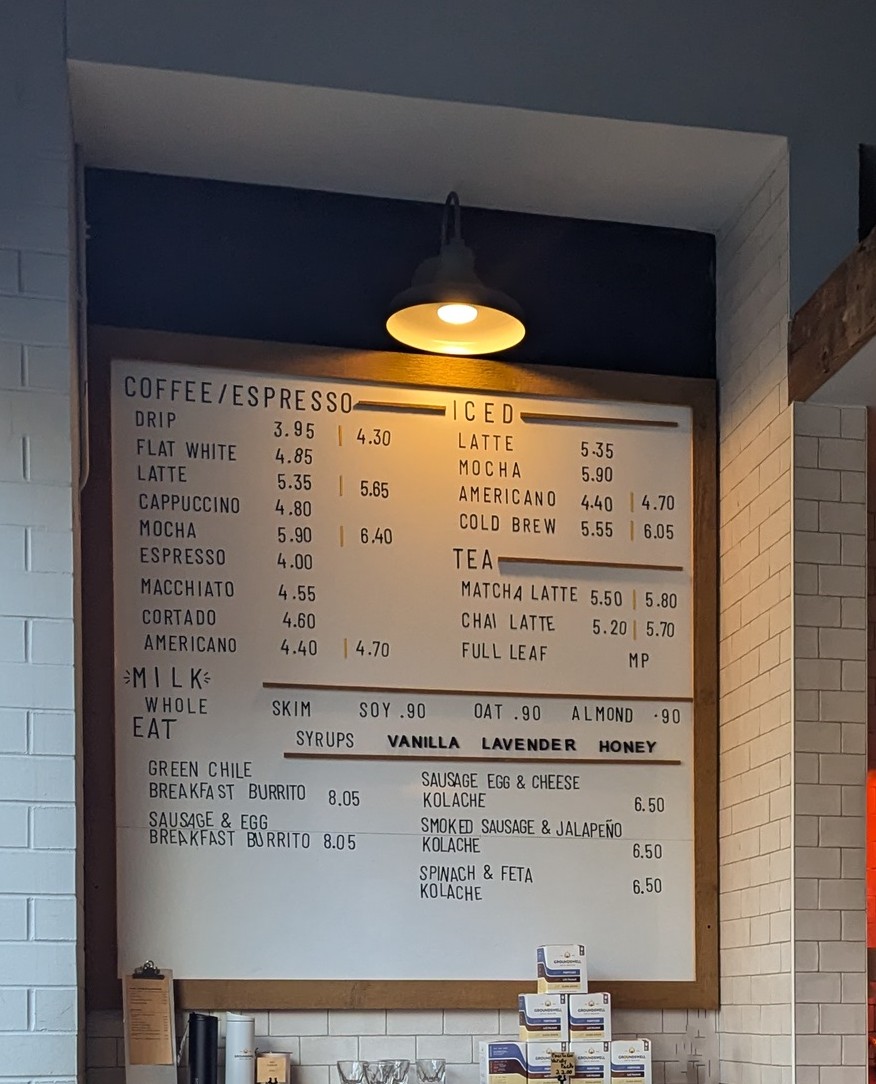 COFFEE/ESPRESSO
DRIP 3.95 | 4.30
FLAT WHITE 4.85
LATTE 5.35 | 5.65
CAPPUCCINO 4.80
MOCHA 5.90 | 6.40
ESPRESSO 4.00
MACCHIATO 4.55
CORTADO 4.60
AMERICANO 4.40 | 4.70
ICED
LATTE 5.35
MOCHA 5.90
AMERICANO 4.40 | 4.70
COLD BREW 5.55 | 6.05
TEA
MATCHA LATTE 5.50 | 5.80
CHAI LATTE 5.20 | 5.70
FULL LEAF MP
MILK
WHOLE SKIM SOY .90 OAT .90 ALMOND .90
SYRUPS VANILLA LAVENDER HONEY
EAT
GREEN CHILE
BREAKFAST BURRITO 8.05
SAUSAGE & EGG
BREAKFAST BURRITO 8.05
SAUSAGE EGG & CHEESE
KOLACHE 6.50
SMOKED SAUSAGE & JALAPEÑO
KOLACHE 6.50
SPINACH & FETA
KOLACHE 6.50
GROUNDSWELL
GROUNDSWELL
GROUNDSWELL